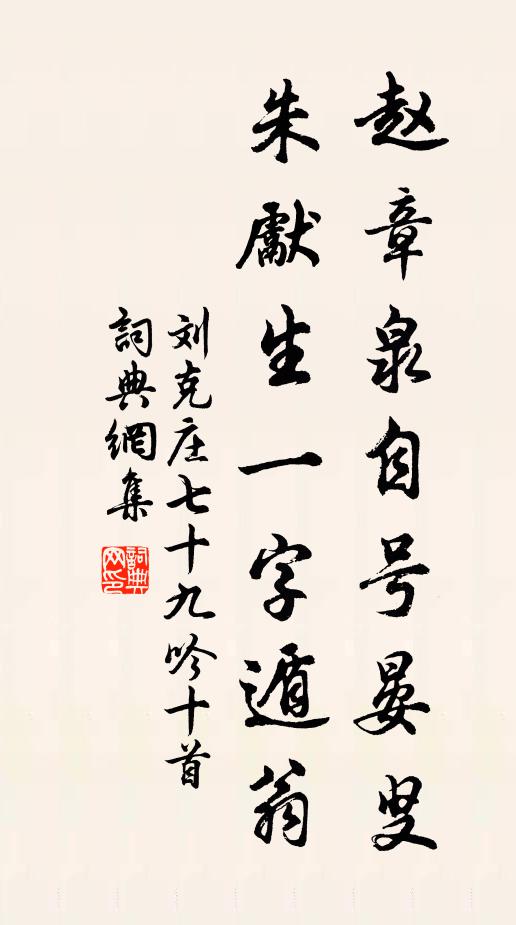 赵章泉自号晏叟
朱獻生一字遁翁
刘克庄七十九吟十首
詞典網集
詞典网印